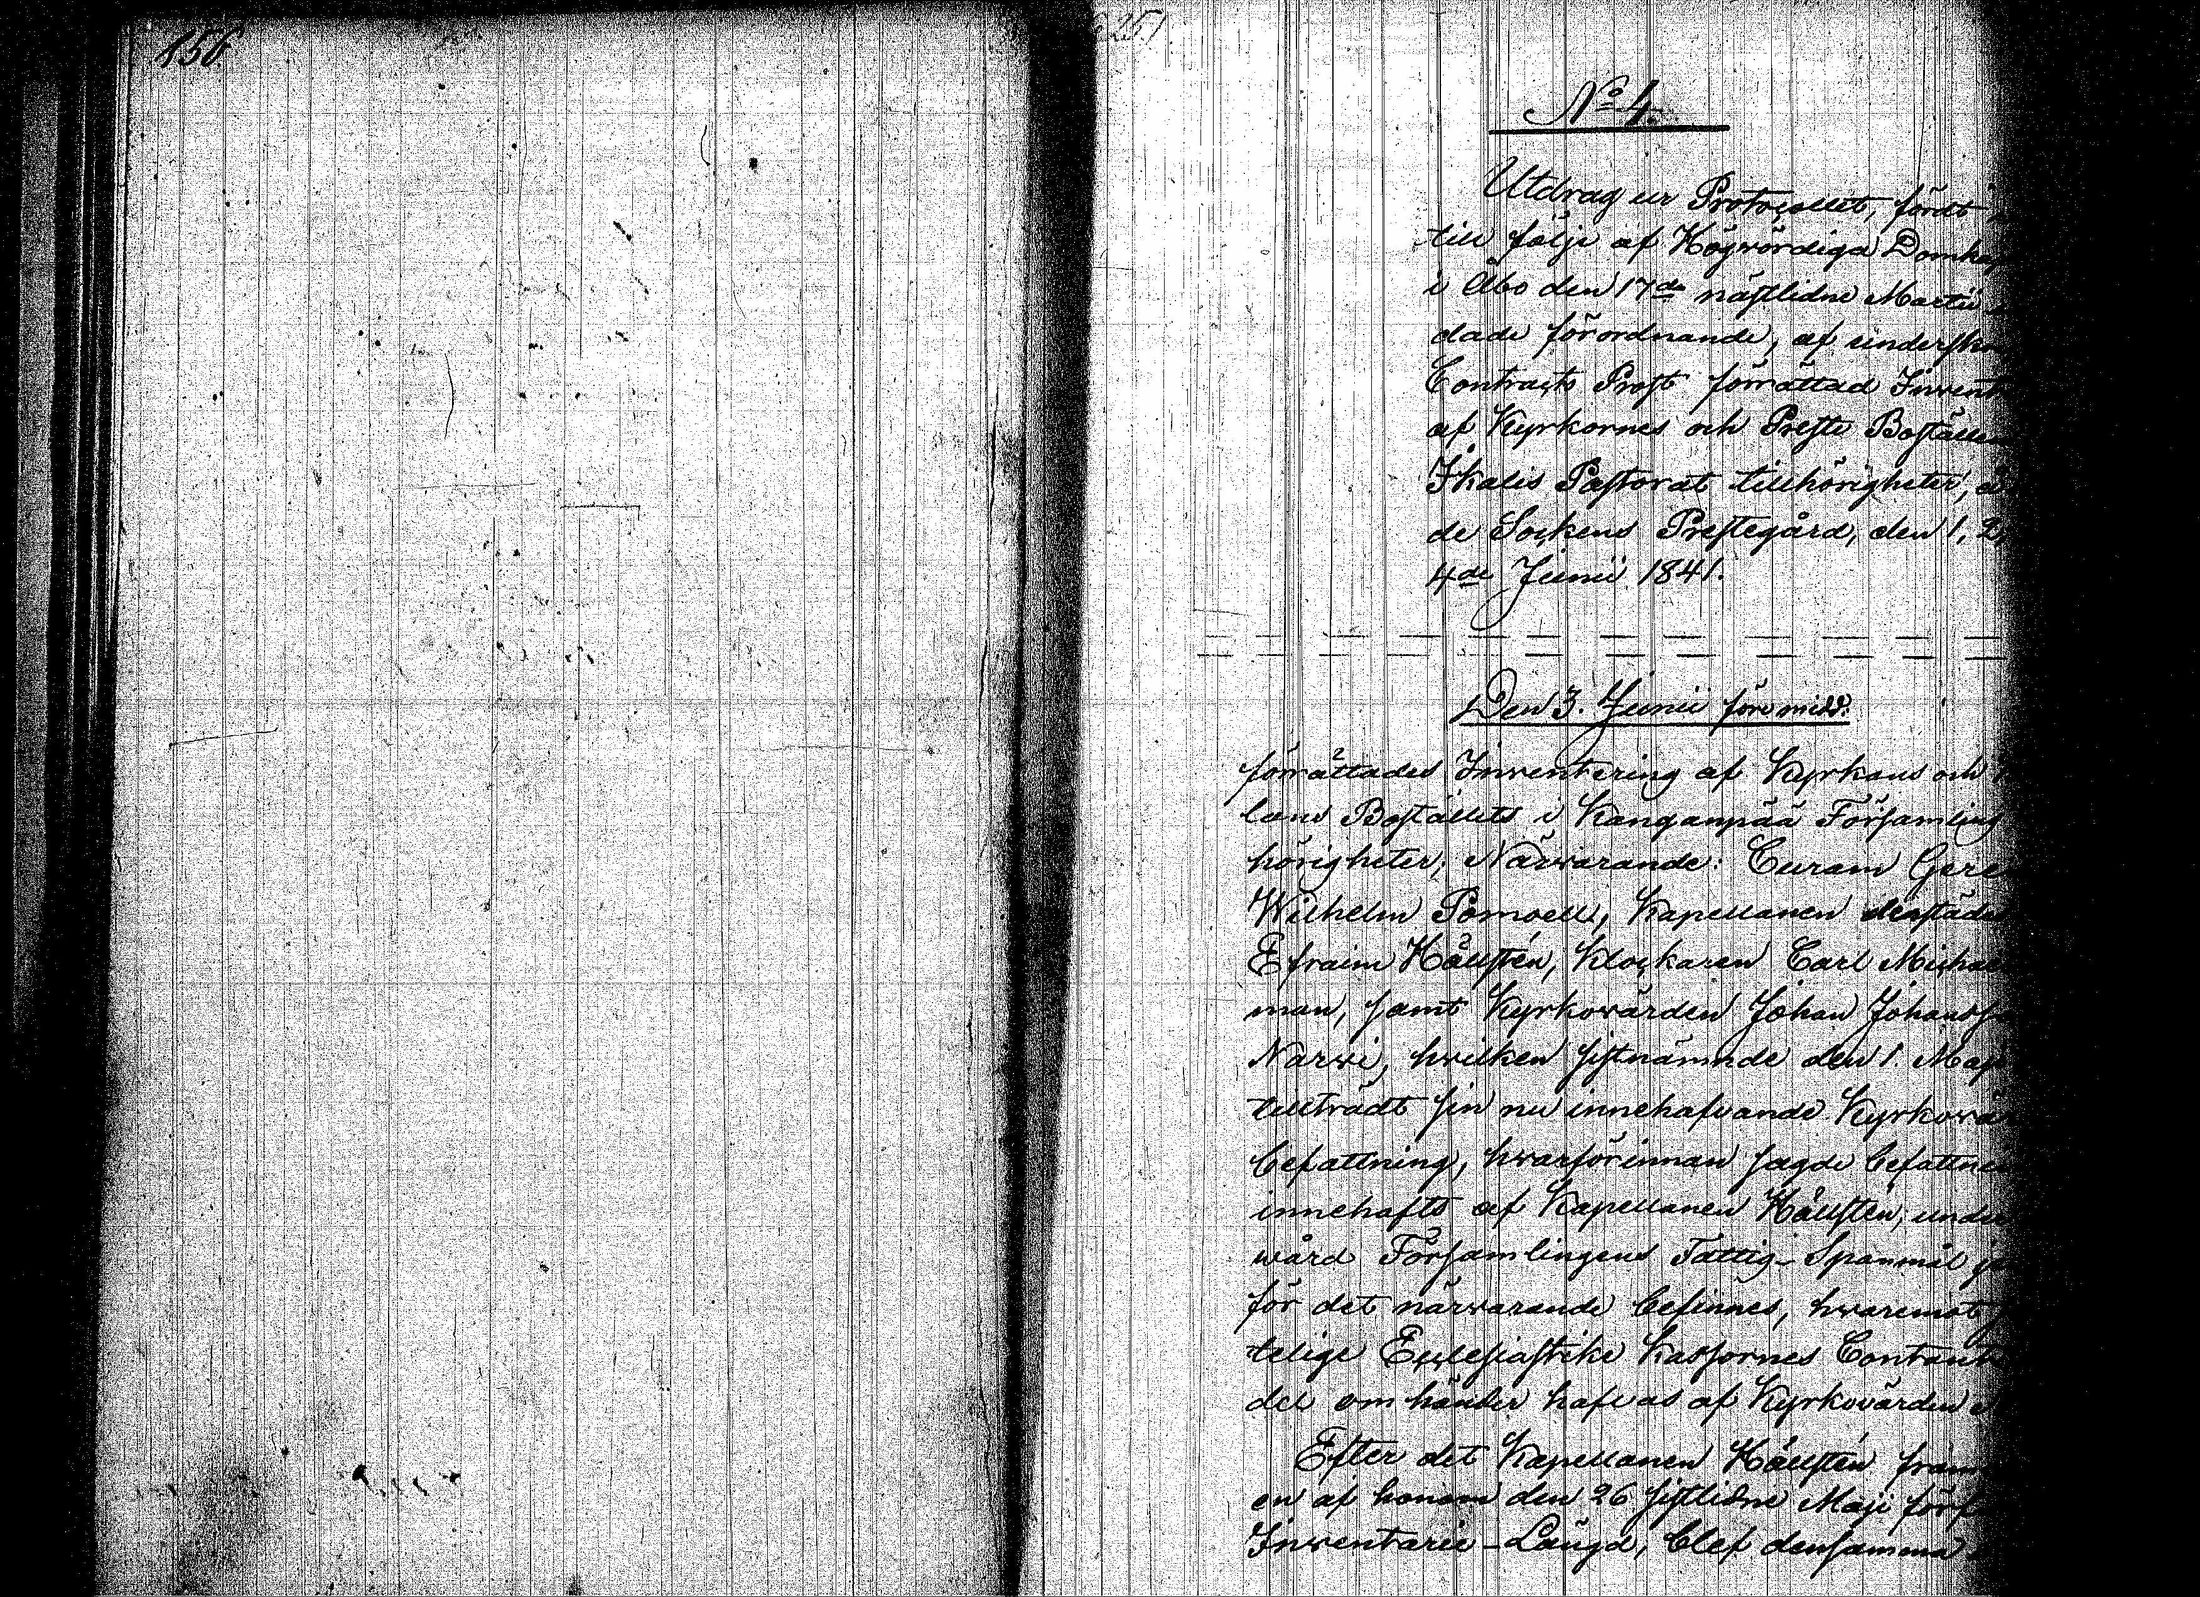 156
251
No 4.
Utdrag ur Protocollet, fördt
till följe af Högvördiga Domka
i Åbo den 17de nästlidne Martii
dade förordnande, af underskr
Contracts Prost förrättad Invent
af Kyrkornes och Preste Boställen
Ikalis Pastorat tillhörigheter, å
de Sockens Prestegård, den 1, 2,
4de Junii 1841.
Den 3. Junii förmidd.
förrättades Inventering af Kyrkans och
lans Boställets i Kanganpää Församling
hörigheter; Närvarande: Curam Gere
Wilhelm Pomoell, Kapellanen derstäde
Efraim Hällstén, Klockaren Carl Michae
man, samt Kyrkovärden Johan Johanss
Narvi, hvilken sistnämnde den 1. Maji
tillträdt sin nu innehafvande Kyrkovä
befattning, hvarförinnan sagde befattni
innehafts af Kapellanen Hällstén; under
vård Församlingens Fattig-Spanmål
för det närvarande befinnes, hvaremot
telige Ecclesiastike Kassornes Contant
del om händer hafvas af Kyrkovärden
Efter det Kapellanen Hällstén fram
en af honom den 26 sistlidne Maji förf
Inventarii-Längd, blef densamma